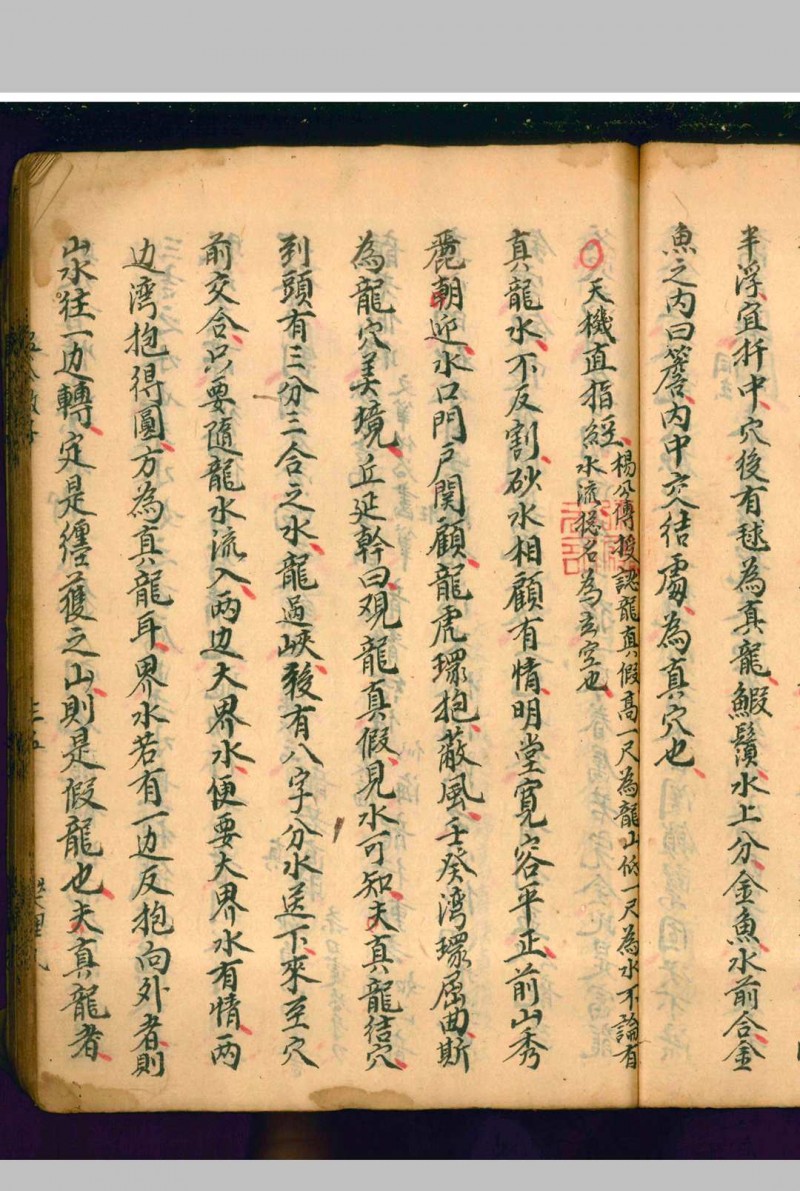 半浮宜扦中穴後有毬為真龍鰕鬚水上分金魚水前合金
魚之内曰簷内中交结處為真穴也
天機直指經
楊公傳授認龍真假高一尺為龍山低一尺為水不論有
水流總名為玄空也
真龍水不反割砂水相顧有情明堂寬容平正前山秀
麗朝迎水口門户関顧龍虎環抱蔽風壬癸湾環屈曲斯
為龍穴美境丘延幹曰观龍真假見水可知夫真龍结穴
到頭有三分三合之水龍過峽後有八字分水送下來至穴
前交合只要随龍水流入两边大界水便要大界水有情两
边湾抱得圓方為真龍耳界水若有一边反抱向外者則
山水往一边轉定是纒護之山則是假龍也夫真龍者